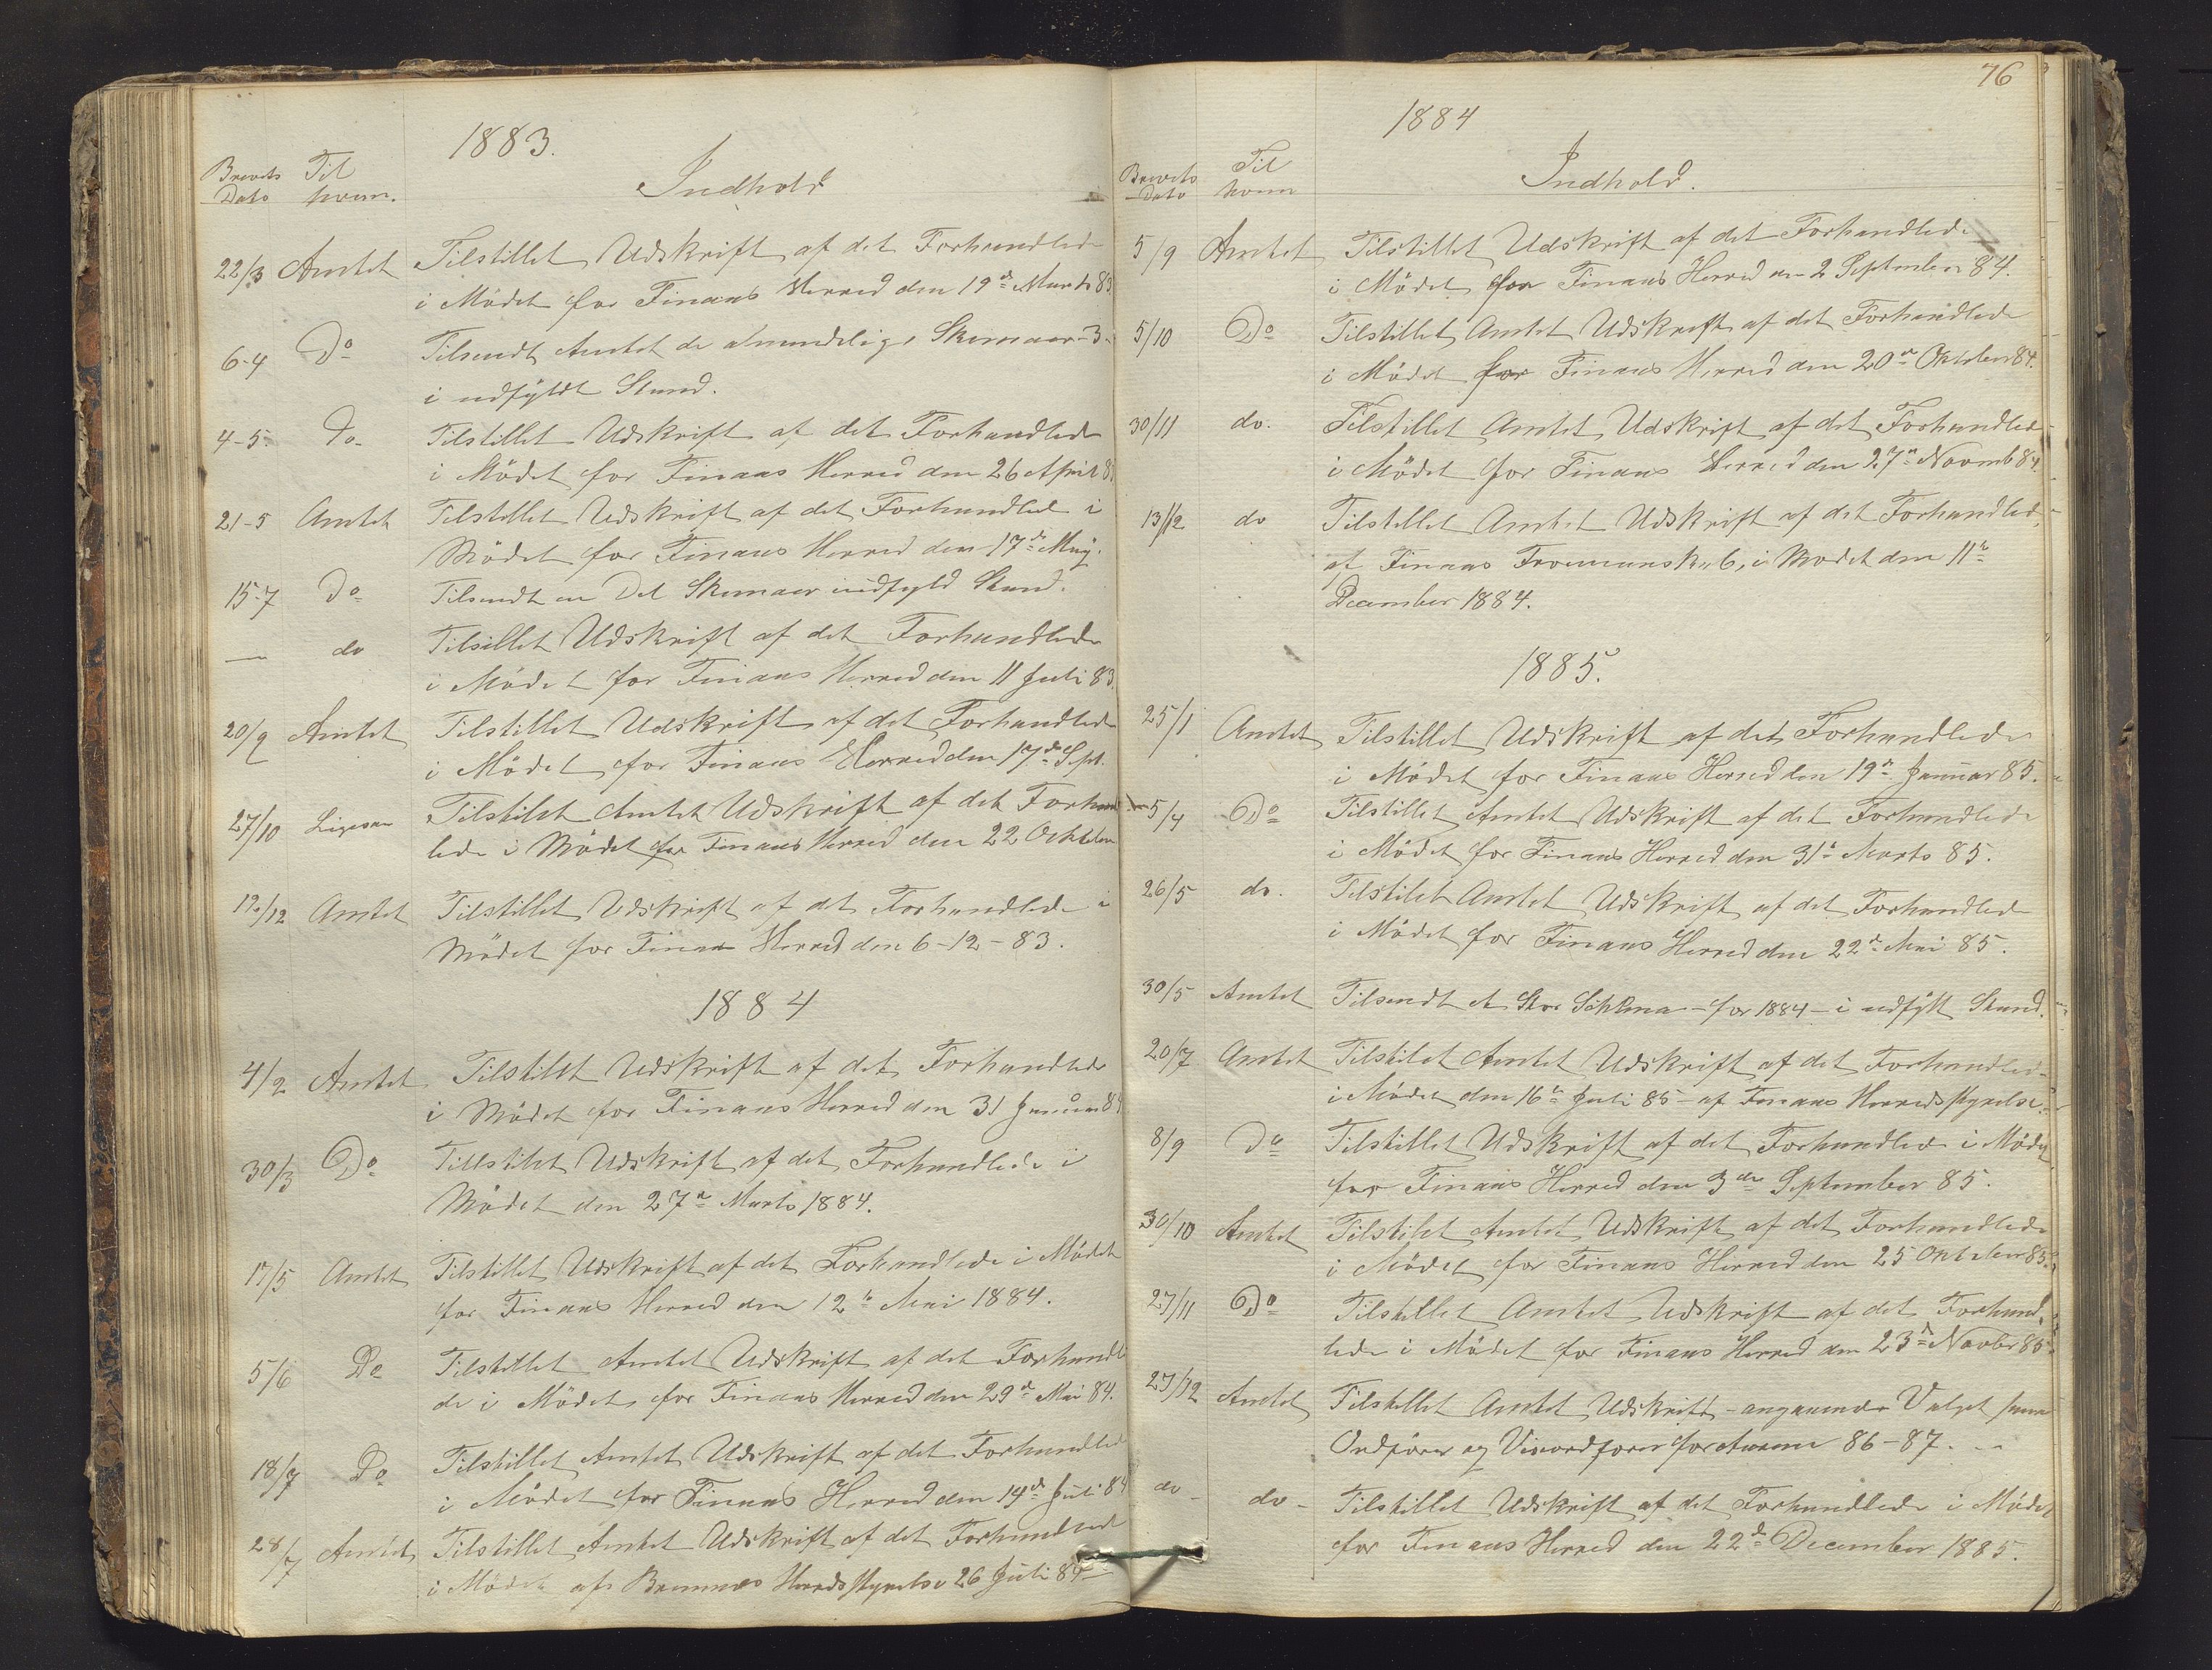 1883.
Brevets Til
Dato hvem.
Indhold
22/3 Amtet Tilstillet Udskrift af det Forhandlede
i Mödet for Finaas Herred den 19de Marts 83
6-4 Do Tilsendt Amtet de almindelige Skemaer 3
i udfyldt Stand.
4-5 Do Tilstillet Udskrift af det Forhandlede
i Mödet for Finaas Herred den 26 April 8
21-5 Amtet Tilstillet Udskrift af det Forhandled i
Mödet for Finaas Herred den 17de May.
15-7 Do Tilsendt en Del Skemaer udfyld Stand.
— do Tilsillet Udskrift af det Forhandlede
i Mödet for Finaas Herred den 11 Juli 83.
20/9 Amtet Tilstillet Udskrift af det Forhandlede
i Mödet for Finaas Herred den 17de Sept.
27/10 Ligesaa Tilstilet Amtet Udskrift af det Forhand
lede i Mödet for Finaas Herred den 22 Ocktober
12/12 Amtet Tilstillet Udskrift af det Forhandlede i
Mödet for Finaas Herred den 6-12-83.
1884
4/2 Amtet Tilstillet Udskrift af det Forhandlede
i Mödet for Finaas Herred den 31 Januar 84
30/3 Do Tillstilet Udskrift af det Forhandlede i
Mödet den 27de Marts 1884.
17/5 Amtet Tilstillet Udskrift af det Forhandlede i Mödet
for Finaas Herred den 12te Mai 1884.
5/6 Do Tilstillet Amtet Udskrift af det Forhandle
de i Mödet for Finaas Herred den 29de Mai 84.
18/7 Do Tilstillet Amtet Udskrift af det Forhandlede
i Mödet for Finaas Herred den 14de Juli 84
28/7 Amtet Tilstillet Amtet Udskrift af det Forhandlede
i Mödet af Bremnes Herredsstyrelse 26 Juli 84
76
1884
Brevets Til
Dato hvem
Indhold.
5/9 Amtet Tilstillet Udskrift af det Forhandlede
i Mödet for Finaas Herred den 2 September 84.
5/10 Do Tilstillet Amtet Udskrift af det Forhandlede
i Mödet for Finaas Herred den 20de Oktober 84.
30/11 do. Tilstillet Amtet Udskrift af det Forhandlede
i Mödet for Finaas Herred den 27de Novemb 84.
13/12 do Tilstillet Amtet Udskrift af det Forhandlede
af Finaas Formannskab, i Mødet den 11te
December 1884.
1885.
25/1 Amtet Tilstillet Udskrift af det Forhandlede
i Mödet for Finaas Herred den 19de Januar 85.
5/4 Do Tilstillet Amtet Udskrift af det Forhandlede
i Mödet for Finaas Herred den 31te Marts 85.
26/5 do. Tilstilet Amtet Udskrift af det Forhandlede
i Mödet for Finaas Herred den 22de Mai 85.
30/5 Amtet Tilsendt et Stor Schema – for 1884 – i udfyllt Stand.
20/7 Amtet Tilstilet Amtet Udskrift af det Forhandlede
i Mödet den 16te Juli 85 – af Finaas Herredsstyrelse.
8/9 Do Tilstillet Udskrift af det Forhandlede i Mödet
for Finaas Herred den 3die September 85.
30/10 Amtet Tilstilet Amtet Udskrift af det Forhandlede
i Mödet for Finaas Herred den 25 Oktober 85.
27/11 Do Tilstillet Amtet Udskrift af det Forhand,
lede i Mödet for Finaas Herred den 23de Novbr 85
27/12 Amtet Tilstillet Amtet Udskrift – angaaende Valget paa
Ordförer og Viseordförer for Aarene 86–87.
do – do – Tilstillet Udskrift af det Forhandlede i Mödet
for Finaas Herred den 22de December 1885.